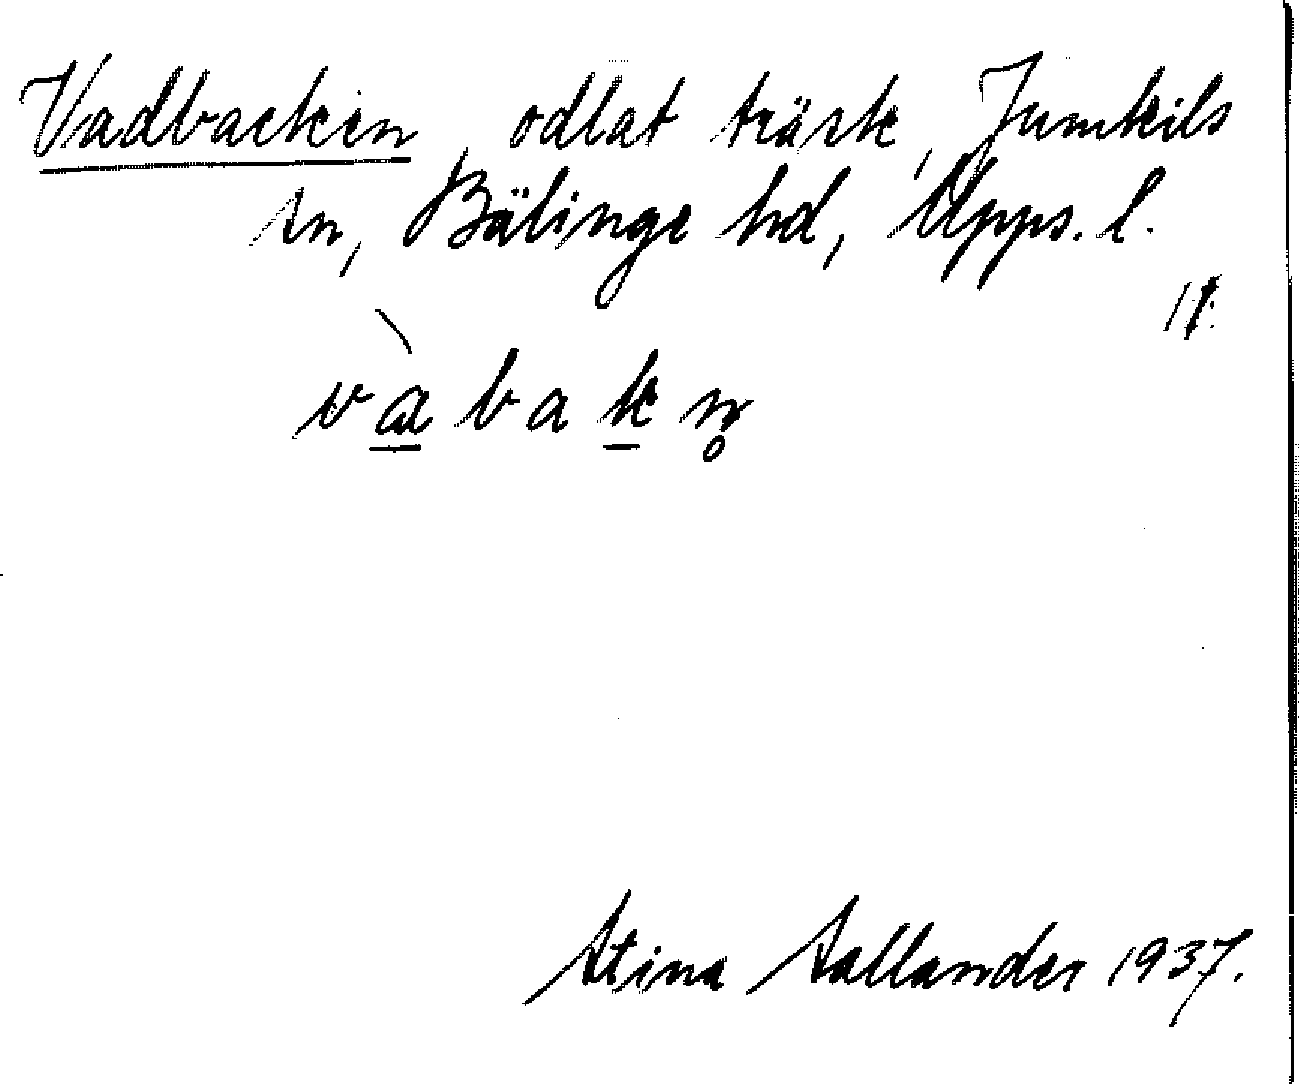 Vadbacken, odlat träsk, Jumkils
sn, Bälinge hd, Upps. l.
17.
và̲bak̲n̥
Stina Sallander 1937.